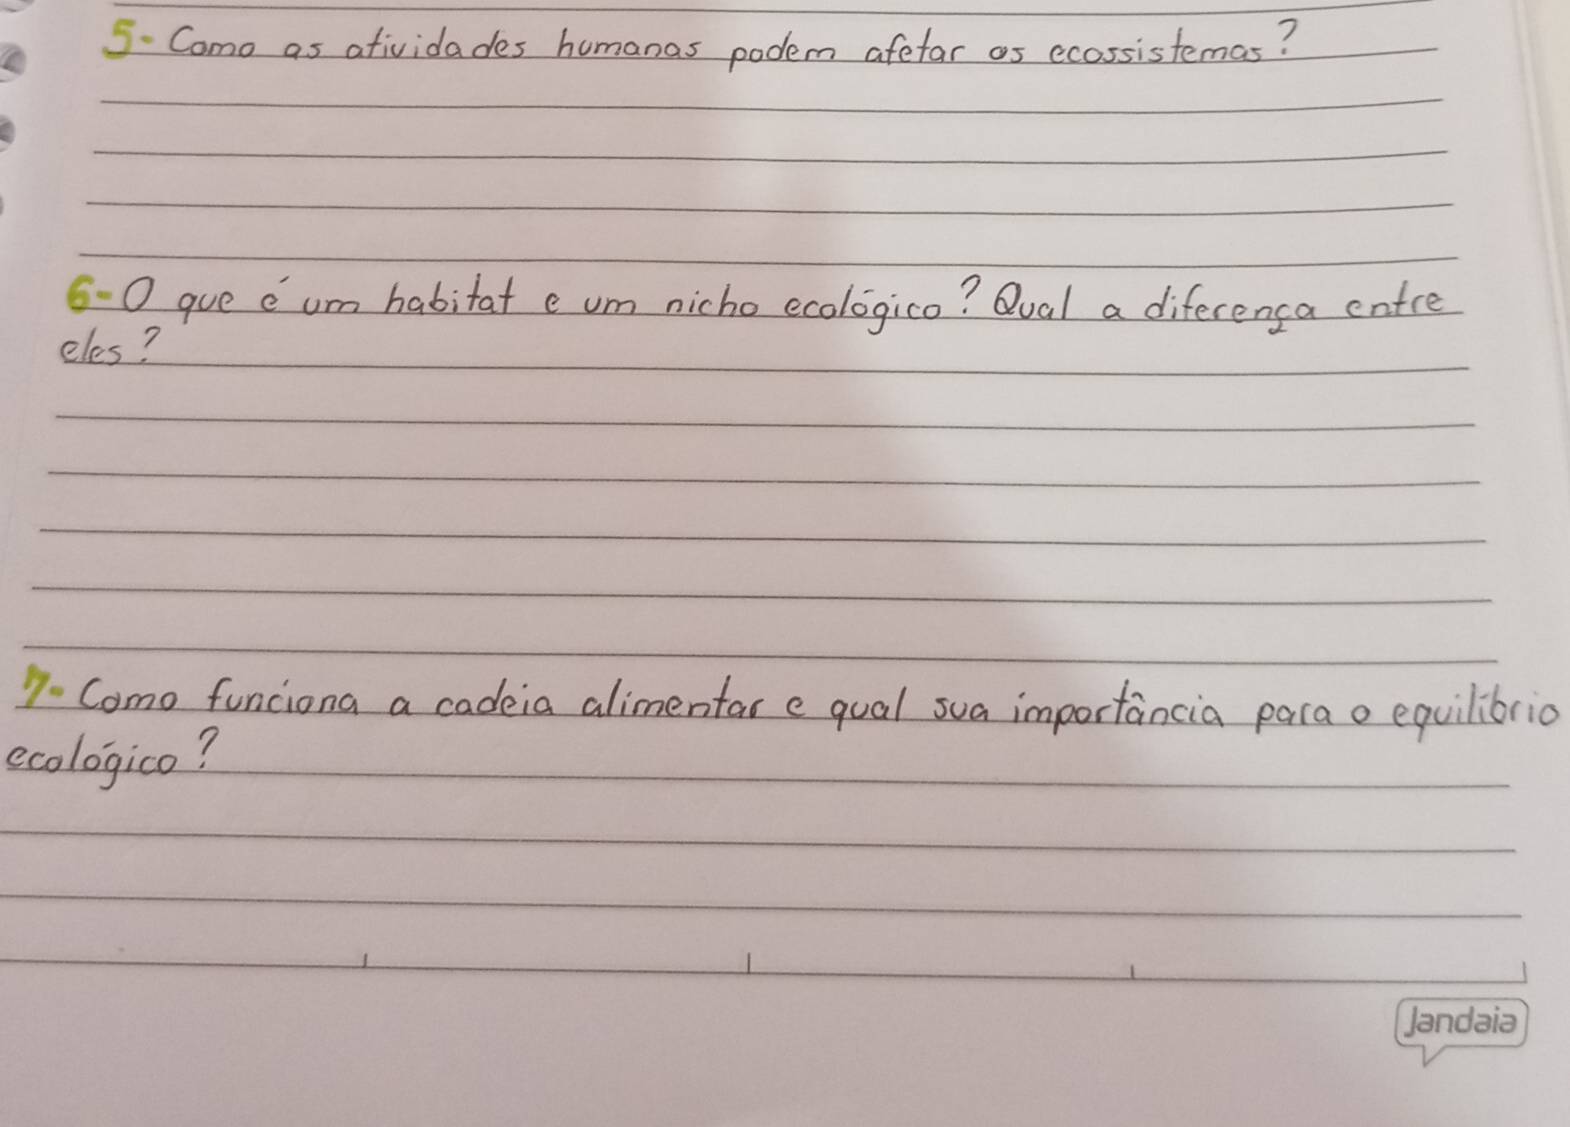 5- Como as atividades humanas podem afetar os ecossistemas?
6- O que é um habitat e um nicho ecológico? Qual a diferença entre
eles?
7- Como funciona a cadeia alimentar e qual sua importância para o equilíbrio
ecológico?
Jandaia